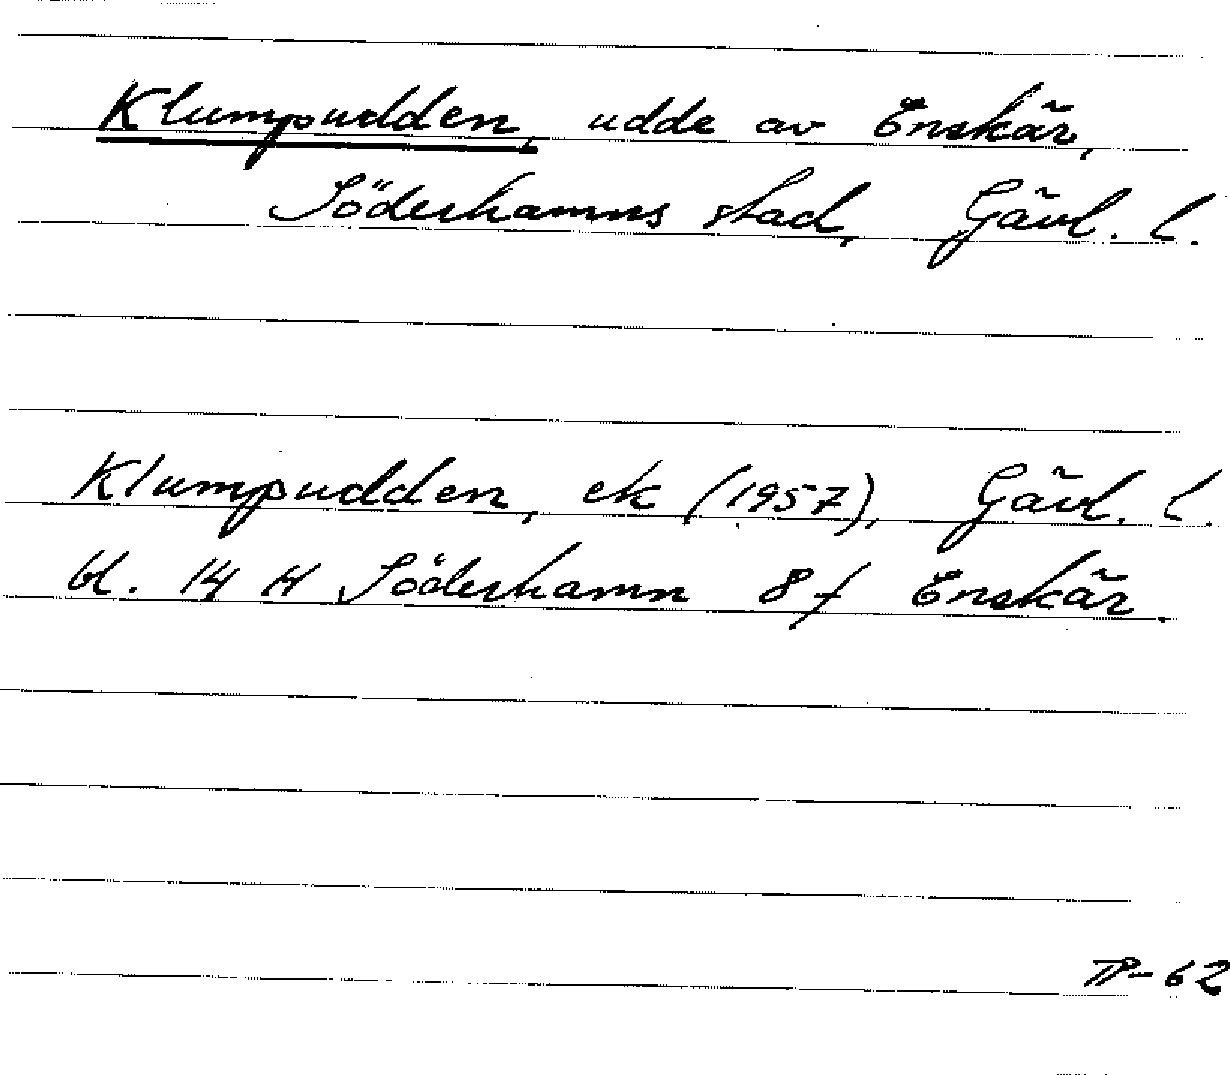 Klumpudden, udde av Enskär,
Söderhamns stad, Gävl. l.
Klumpudden, ek (1957), Gävl. l.
bl. 14 H Söderhamn 8 f Enskär.
TP-62